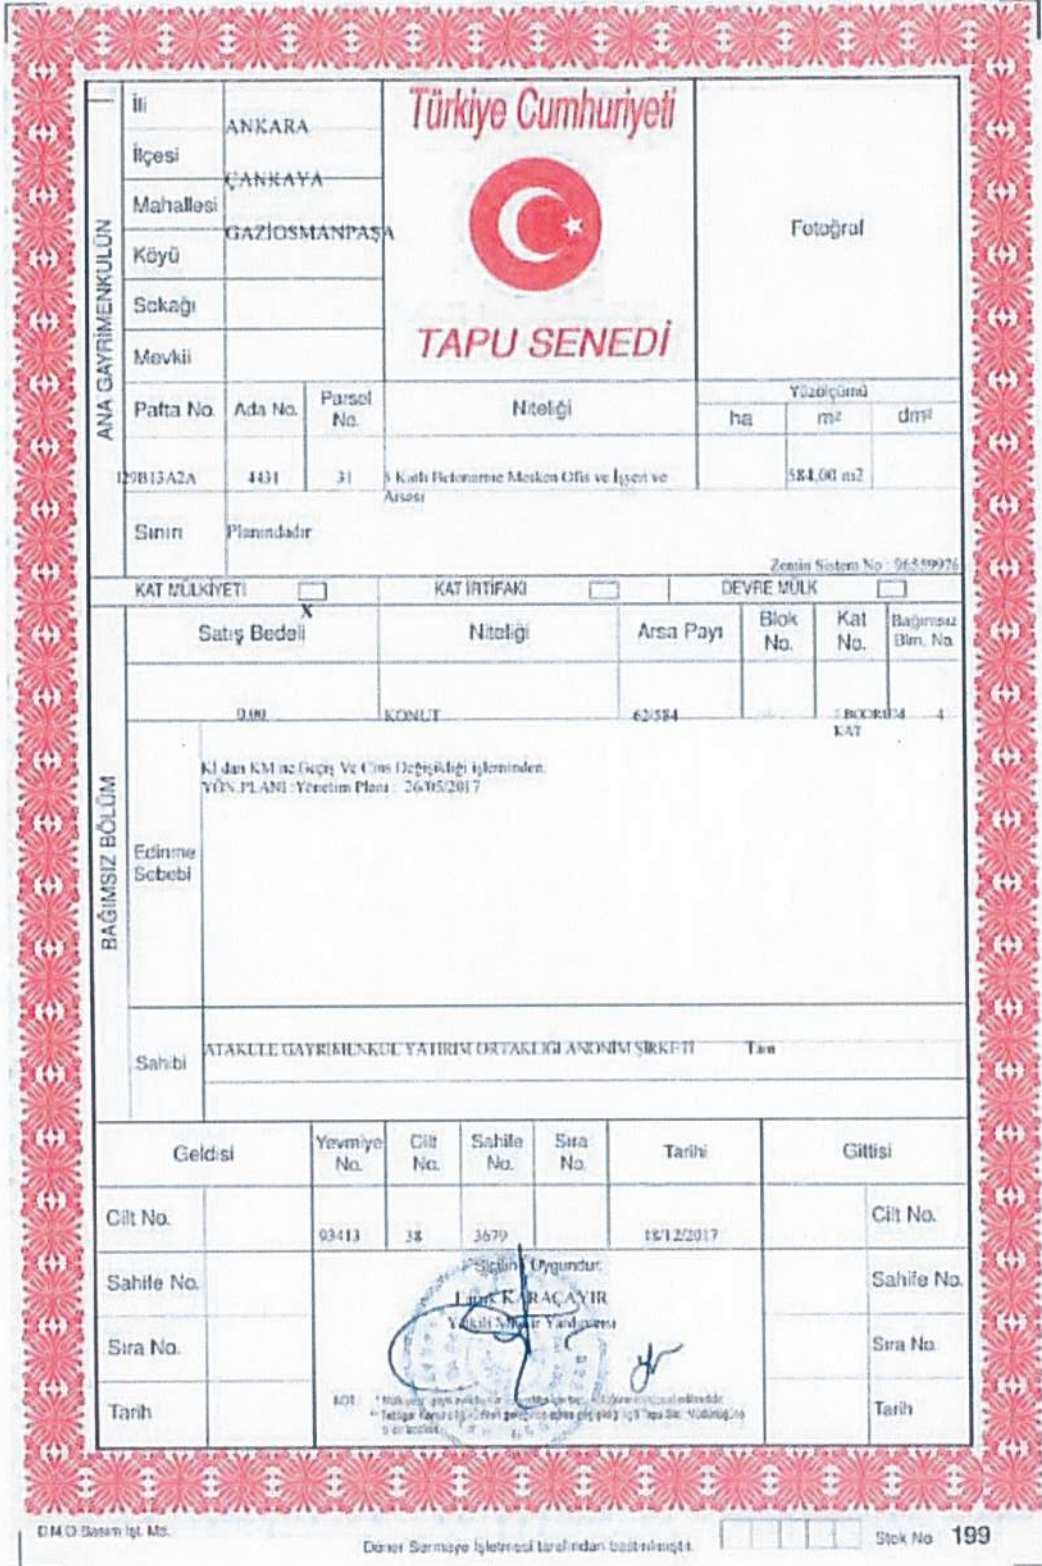 Türkiye Cumhuriyeti
TAPU SENEDİ
Fotoğraf
ANA GAYRİMENKULÜN
İli
ANKARA
İlçesi
ÇANKAYA
Mahallesi
GAZİOSMANPAŞA
Köyü
Sokağı
Mevkii
Pafta No. Ada No. Parsel No. Niteliği Yüzölçümü
ha m² dm²
I29B13A2A 4431 31 5 Katlı Betonarme Mesken Ofis ve İşyeri ve 584,00 m2
Arsası
Sınırı Planındadır
Zemin Sistem No : 96559976
KAT MÜLKİYETİ X KAT İRTİFAKI DEVRE MÜLK
BAĞIMSIZ BÖLÜM
Satış Bedeli Niteliği Arsa Payı Blok No. Kat No. Bağımsız Blm. No.
0.00 KONUT 62/584 BODRUM 4
KAT
Edinme Sebebi
Kİ dan KM ne Geçiş Ve Cins Değişikliği işleminden.
YÖN.PLANI :Yönetim Planı : 26/05/2017
Sahibi
ATAKULE GAYRİMENKUL YATIRIM ORTAKLIĞI ANONİM ŞİRKETİ Tam
Geldisi Yevmiye No. Cilt No. Sahife No. Sıra No. Tarihi Gittisi
Cilt No. 93413 38 3679 18/12/2017 Cilt No.
Sahife No. Siciline Uygundur. Sahife No.
KARAÇAYIR
Yetkili Müdür Yardımcısı
Sıra No. Sıra No.
Tarih Tarih
NOT :
D.M.O Basım İşl. Md.
Döner Sermaye İşletmesi tarafından bastırılmıştır.
Stok No 199